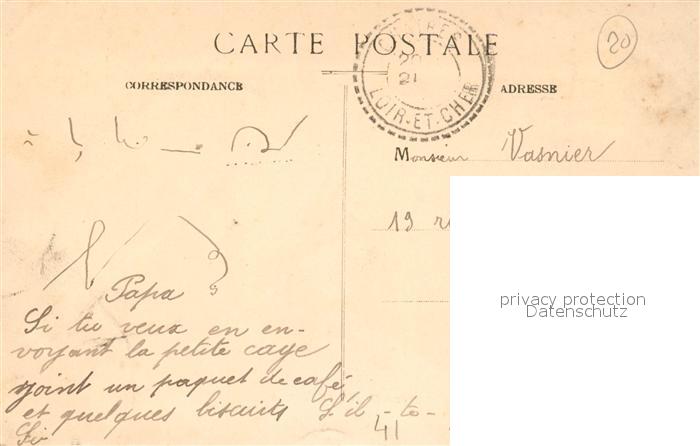 CARTE POSTALE
20
CORRESPONDANCE
ADRESSE
20
21
LOIR-ET-CHER
Monsieur Vasnier
19
privacy protection
Datenschutz
Papa
Si tu veux en en-
voyant la petite cage
joint un paquet de café
et quelques biscuits S'il - te -
41